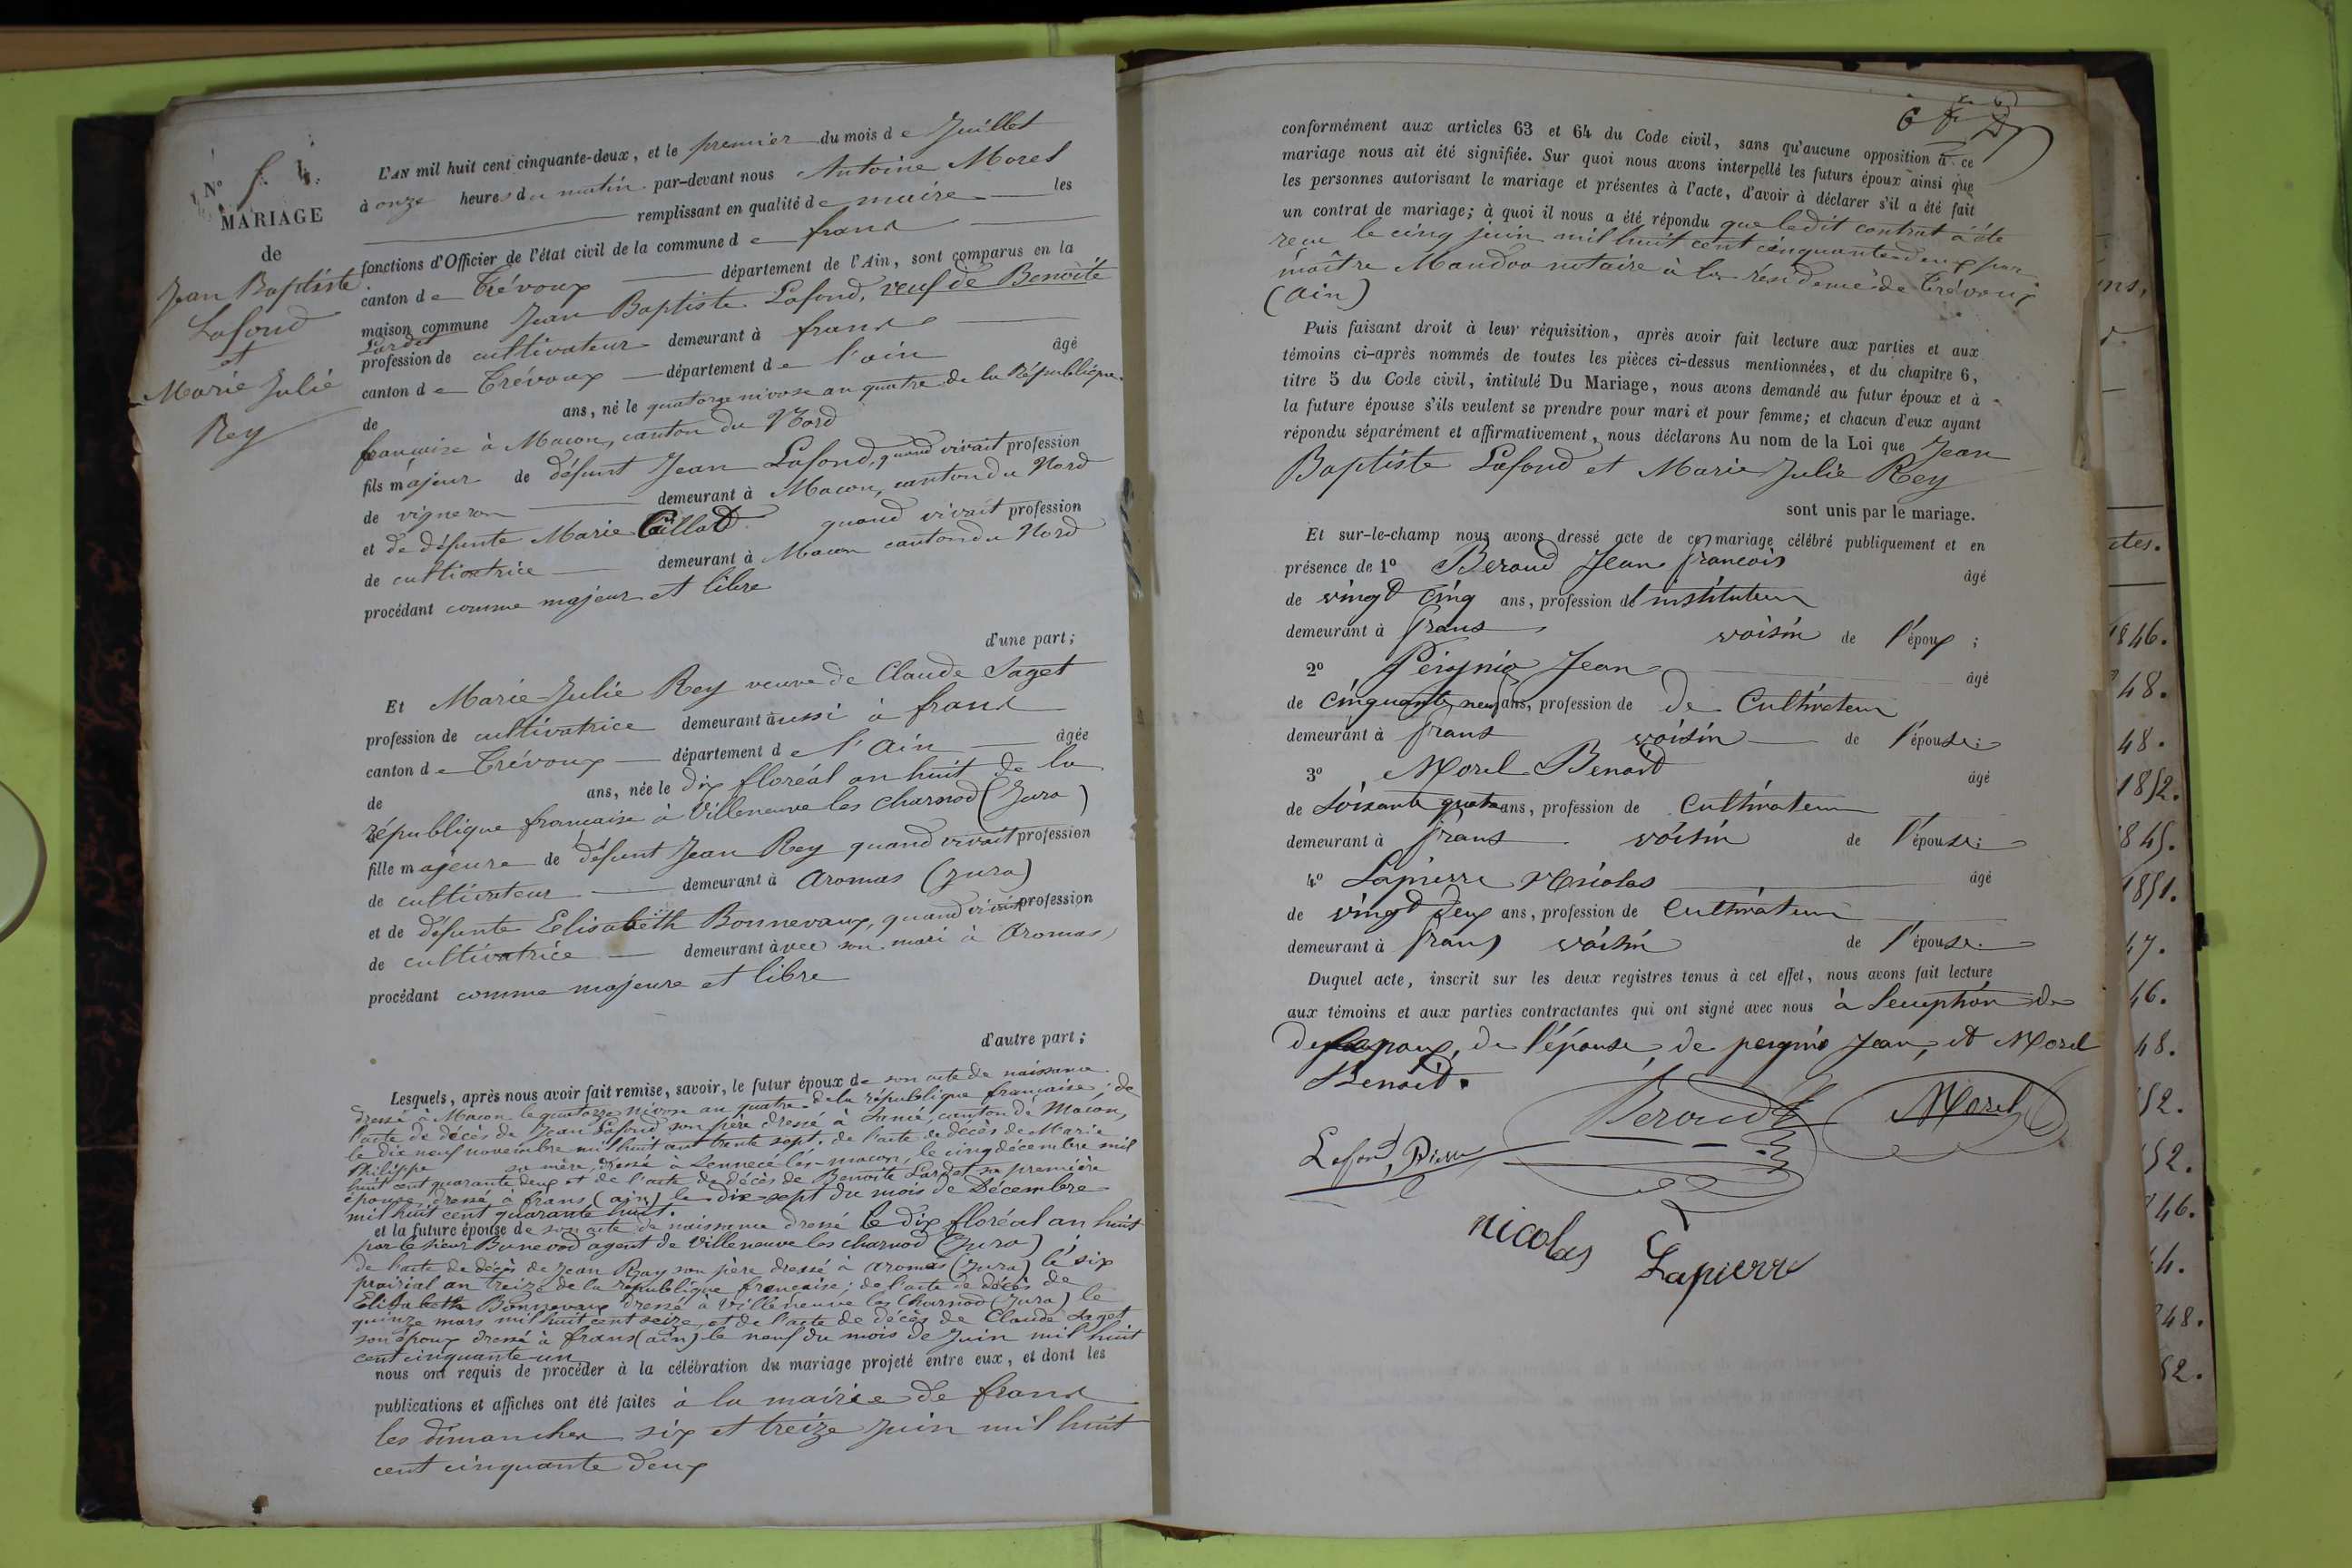 N° 
MARIAGE
de
Jean Baptiste
Lafond
et
Marie Julie
Rey
L'AN mil huit cent cinquante-deux, et le premier du mois de Juillet
à onze heures du matin par-devant nous Antoine Morel
remplissant en qualité de maire les
fonctions d'Officier de l'état civil de la commune de frans
canton de Trévoux département de l'Ain, sont comparus en la
maison commune Jean Baptiste Lafond, veuf de Benoite
Lardet
profession de cultivateur demeurant à frans
canton de Trévoux département de l'ain âgé
de ans, né le quatorze nivose an quatre de la République
française à Macon, canton du Nord
fils majeur de défunt Jean Lafond, quand vivait profession
de vigneron demeurant à Macon, canton du Nord
et de défunte Marie quand vivait profession
de cultivatrice demeurant à Macon canton du Nord
procédant comme majeur et libre
d'une part;
Et Marie-Julie Rey veuve de Claude Saget
profession de cultivatrice demeurant aussi à frans
canton de Trévoux département de l'Ain âgée
de ans, née le dix floréal an huit de la
république française à Villeneuve les charnod (Jura)
fille majeure de défunt Jean Rey quand vivait profession
de cultivateur demeurant à Aromas (Jura)
et de défunte Elisabeth Bonnevaux, quand vivait profession
de cultivatrice demeurant avec son mari à Aromas
procédant comme majeure et libre
d'autre part;
Lesquels, après nous avoir fait remise, savoir, le futur époux de son acte de naissance
dressé à Macon le quatorze nivose an quatre de la république française; de
l'acte de décès de Jean Lafond son père dressé à canton de Macon,
le dix neuf novembre mil huit cent trente sept, de l'acte de décès de Marie
Philippe sa mère, dressé à Sennecé lès-macon, le cinq décembre mil
huit cent quarante deux et de l'acte de décès de Benoite Lardet sa première
épouse, dressé à frans (ain) le dix-sept du mois de Décembre
mil huit cent quarante huit.
et la future épouse de son acte de naissance dressé le dix floréal an huit
par le sieur Bonevod agent de Villeneuve les charnod (Jura)
de l'acte de décès de Jean Rey son père dressé à Aromas (Jura) le six
prairial an treize de la république française; de l'acte de décès de
Elisabeth Bonnevaux dressé à Villeneuve les Charnod (Jura) le
quinze mars mil huit cent seize, et de l'acte de décès de Claude Saget
son époux dressé à frans (ain) le neuf du mois de Juin mil huit
cent cinquante-un
nous ont requis de procéder à la célébration du mariage projeté entre eux, et dont les
publications et affiches ont été faites à la mairie de frans
les dimanches six et treize juin mil huit
cent cinquante deux
conformément aux articles 63 et 64 du Code civil, sans qu'aucune opposition à ce
mariage nous ait été signifiée. Sur quoi nous avons interpellé les futurs époux ainsi que
les personnes autorisant le mariage et présentes à l'acte, d'avoir à déclarer s'il a été fait
un contrat de mariage; à quoi il nous a été répondu que ledit contrat a été
reçu le cinq juin mil huit cent cinquante deux par
maître Mandoo notaire à la résidence de Trévoux
(Ain)
Puis faisant droit à leur réquisition, après avoir fait lecture aux parties et aux
témoins ci-après nommés de toutes les pièces ci-dessus mentionnées, et du chapitre 6,
titre 5 du Code civil, intitulé Du Mariage, nous avons demandé au futur époux et à
la future épouse s'ils veulent se prendre pour mari et pour femme; et chacun d'eux ayant
répondu séparément et affirmativement, nous déclarons Au nom de la Loi que Jean
Baptiste Lafond et Marie Julie Rey
sont unis par le mariage.
Et sur-le-champ nous avons dressé acte de ce mariage célébré publiquement et en
présence de 1° Beroud Jean francois âgé
de vingt cinq ans, profession de instituteur
demeurant à frans voisin de l'époux;
2° Jean âgé
de cinquante neuf ans, profession de de Cultivateur
demeurant à frans voisin de l'épouse;
3° Morel Benoit âgé
de Soixante quatre ans, profession de Cultivateur
demeurant à frans voisin de l'épouse;
4° Lapierre Nicolas âgé
de vingt deux ans, profession de Cultivateur
demeurant à frans voisin de l'épouse.
Duquel acte, inscrit sur les deux registres tenus à cet effet, nous avons fait lecture
aux témoins et aux parties contractantes qui ont signé avec nous à l'exception de
de l'époux, de l'épouse, de Jean, et Morel
Benoit.
Beroud
Morel
Lafond, Pierre
nicolas Lapierre
1846.
48.
48.
1852.
845.
1851.
47.
46.
48.
52.
52.
46.
44.
248.
52.